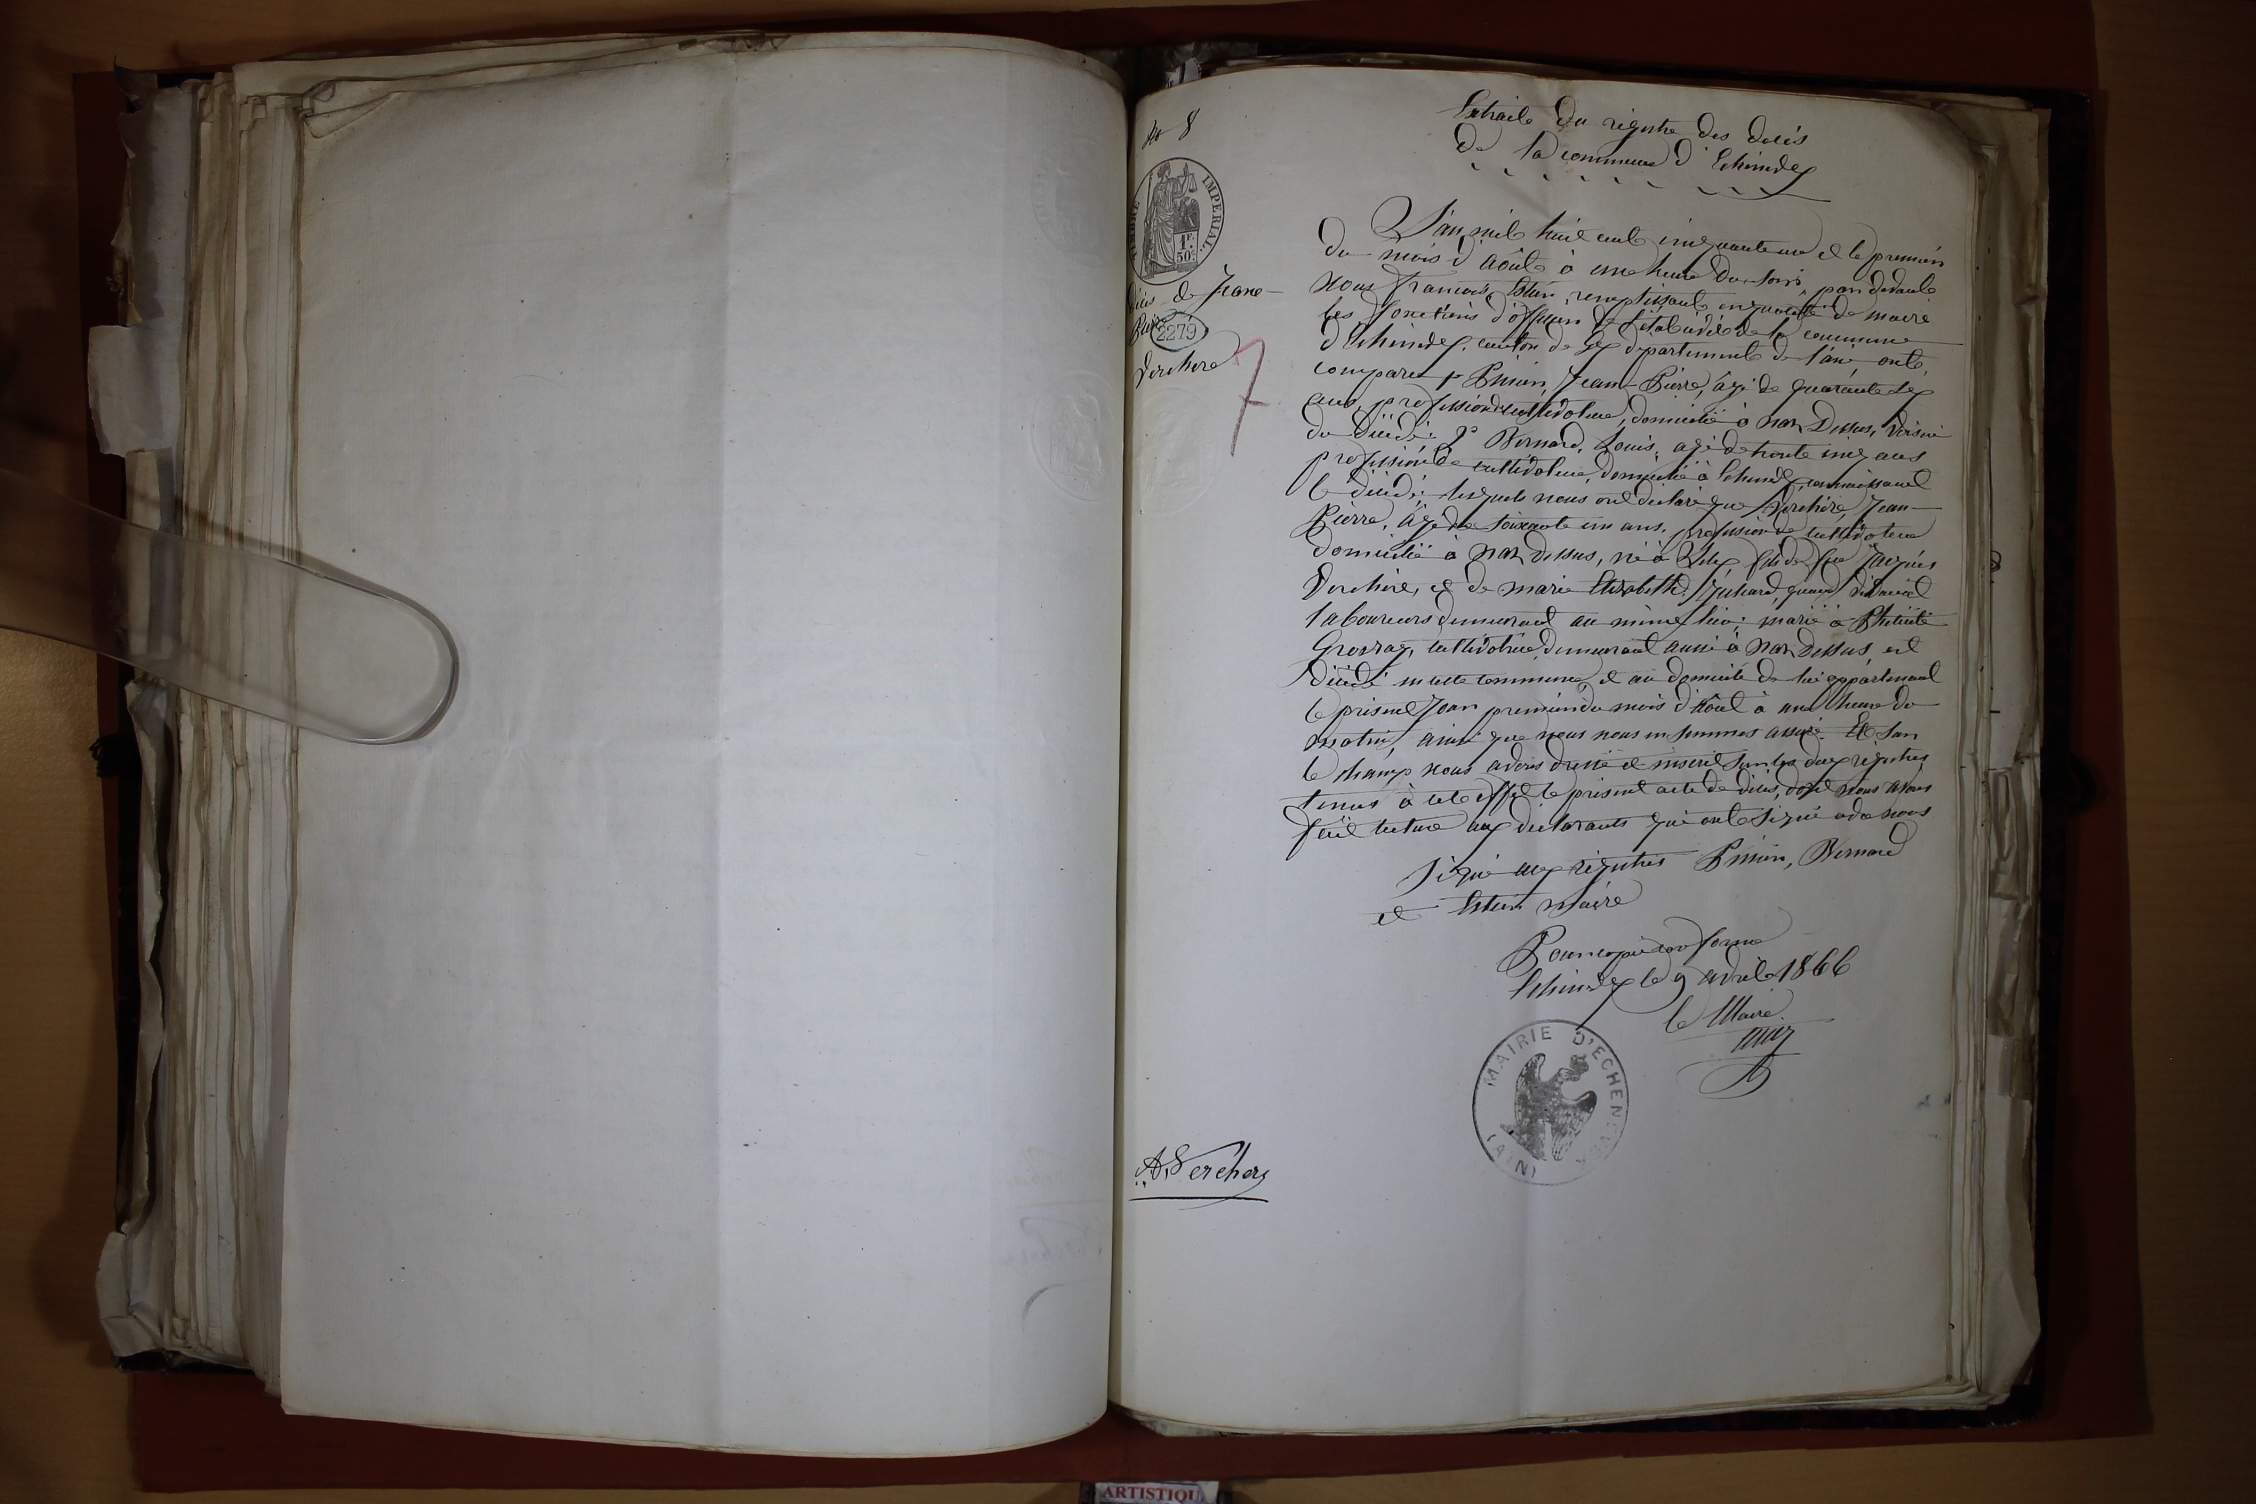 No 8
TIMBRE IMPERIAL
1F. 50c
Décès de Jean
Pierre
2279
Verchere
7
Extraite du registre des décès
De la commune d'Echenevex
L'an mil huit cent cinquante un et le premier
du mois d'Août à une heure du soir, par devant
Nous francois Estier, remplissant en qualité de maire
les fonctions d'officier de l'état civil de la commune
d'Echenevex canton de Gex département de l'ain ont
comparu 1° Jean Pierre, âgé de quarante
ans, profession de cultivateur, domicilié à Naz Dessus, voisin
du décédé; 2° Bernard, Louis, agé de trente cinq ans
profession de cultivateur, domicilié à Echenevex, connaissant
le décédé; lesquels nous ont déclaré que Verchère, Jean
Pierre, âgé de soixante un ans, profession de cultivateur
domicilié à Naz dessus, né à fils de feu Jacques
Verchère, et de marie Elizabeth, quand vivaient
laboureurs demeurant au même lieu; marié à
Grosray, cultivatrice, demeurant aussi à Naz Dessus, est
décédé en cette commune, et au domicile de lui appartenant
le présent Jour premier du mois d'Août à une heure du
matin, ainsi que nous nous en sommes assuré. Et sur
le champ nous avons dressé et inscrit sur les deux registres
tenus à cet effet le présent acte de décès, dont nous avons
fait lecture aux déclarants qui ont signé avec nous
Signé aux registres Bernard
et Estier maire
Pour copie conforme
Echenevex le 9 avril 1866
le Maire
MAIRIE D'ECHENEVEX
(AIN)
A. Verchere
ARTISTIQU